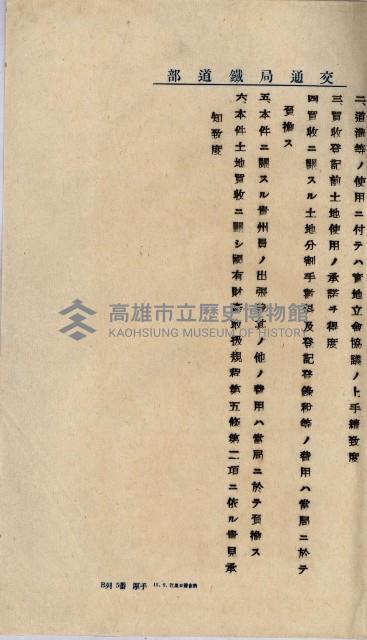 部道鐵局通交
二、道溝等ノ使用ニ付テハ實地立會協議ノ上手續致度
三、買收登記前土地使用ノ承諾ヲ得度
四、買收ニ關スル土地分割手數料及登記登錄稅等ノ費用ハ當局ニ於テ
負擔ス
五、本件ニ關スル貴州員ノ出張其ノ他ノ費用ハ當局ニ於テ負擔ス
六、本件土地買收ニ關シ國有財產取扱規程第五條第二項ニ依ル書見承
知致度
高雄市立歷史博物館
KAOHSIUNG MUSEUM OF HISTORY
B列5番 厚手